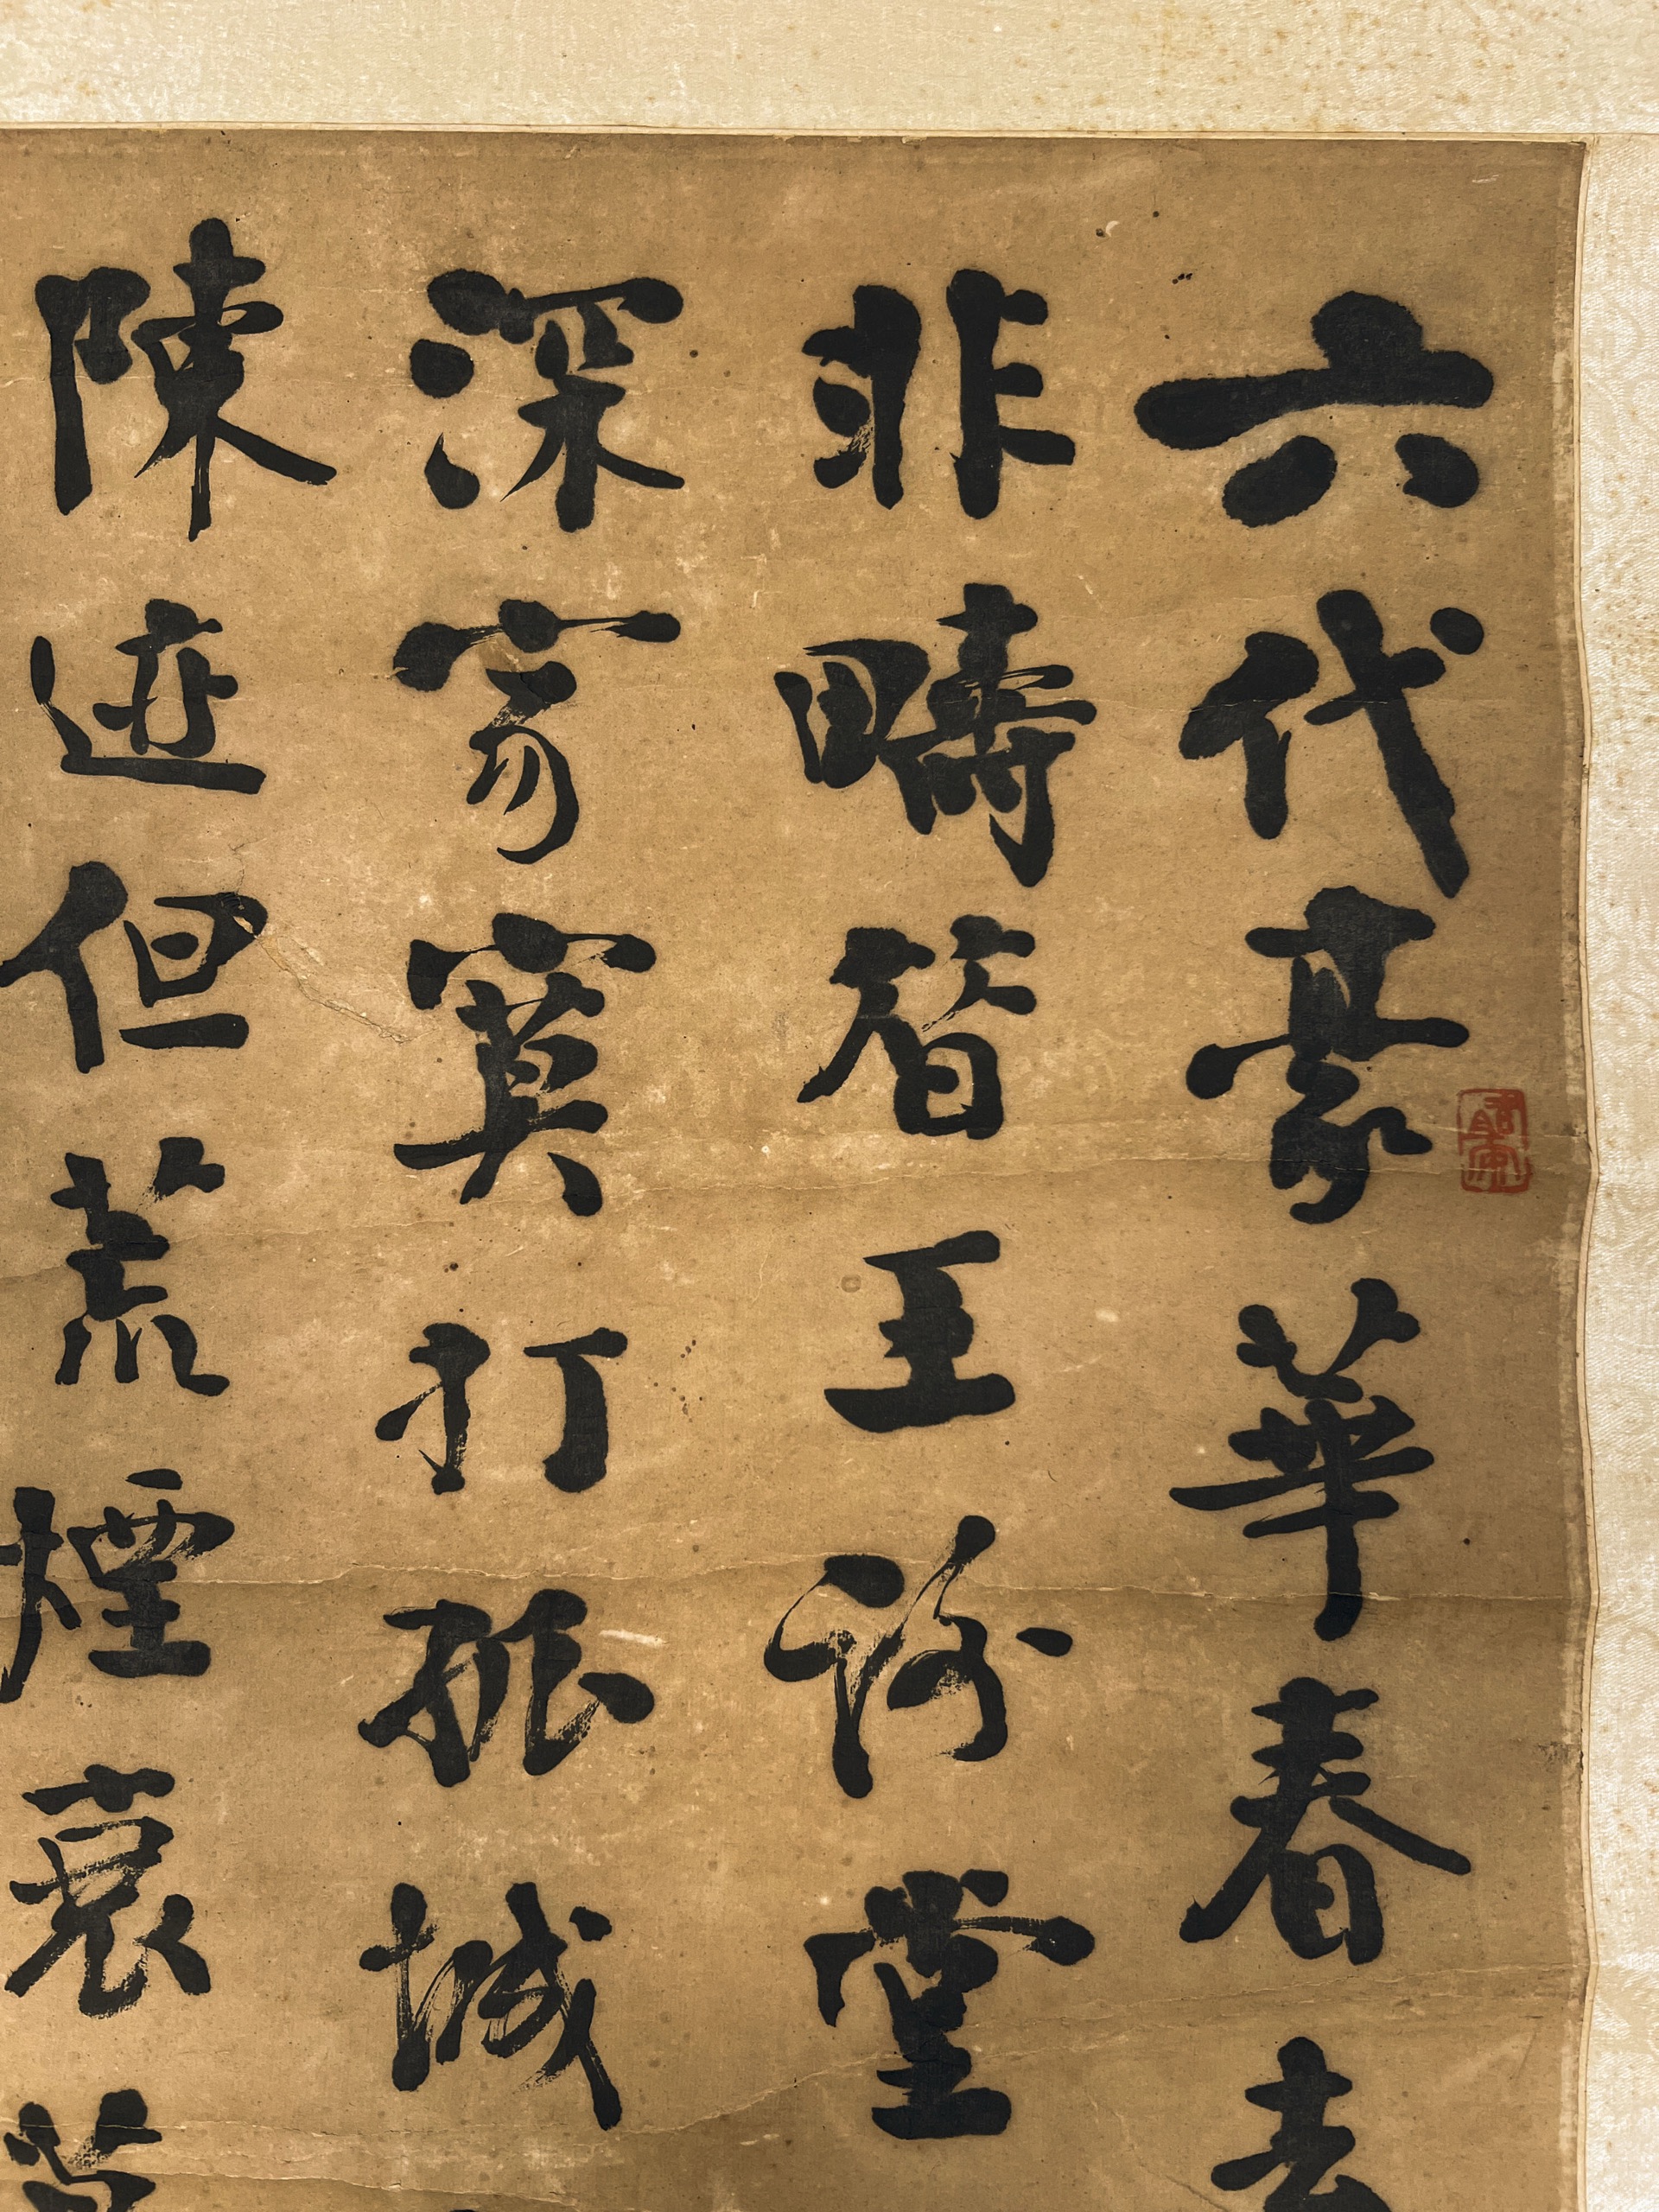 六代豪華春去
非疇昔王謝堂
深寂寞打孤城
陳迹但荒煙衰